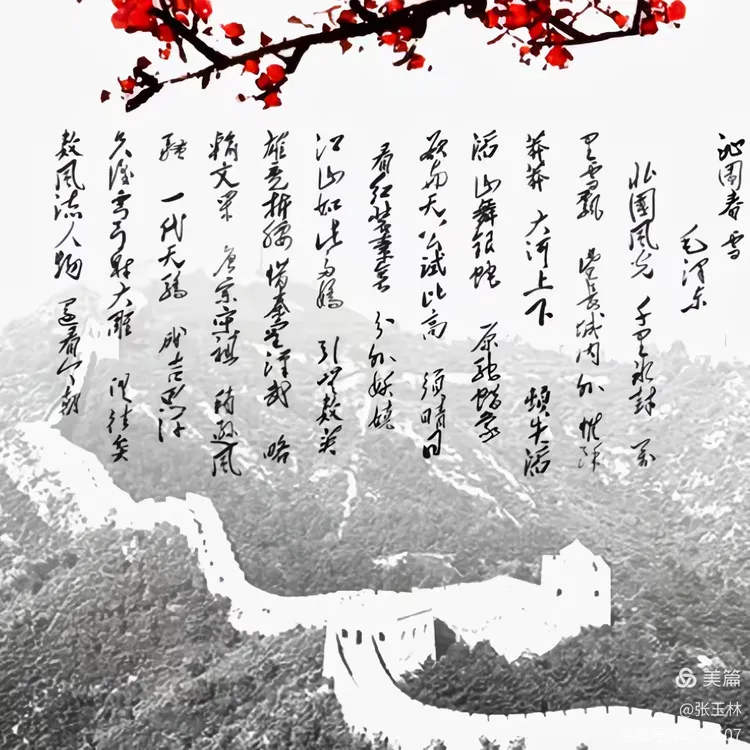 沁園春 雪
毛泽东
北國風光 千里冰封 万
里雪飘 望长城内外 惟馀
莽莽 大河上下 頓失滔
滔 山舞银蛇 原驰蜡象
欲与天公試比高 须晴日
看红装素裹 分外妖娆
江山如此多嬌 引无数英
雄竞折腰 惜秦皇漢武 略
输文采 唐宗宋祖 稍逊风
骚 一代天骄 成吉思汗
只识弯弓射大雕 俱往矣
数风流人物 还看今朝
美篇
@张玉林